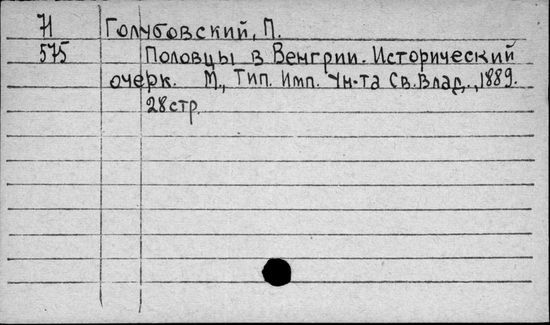 71 Голубовский, П.
575 Половцы в Венгрии. Исторический
очерк. М., Тип. Имп. Ун-та Св. Влад., 1889.
28 стр.